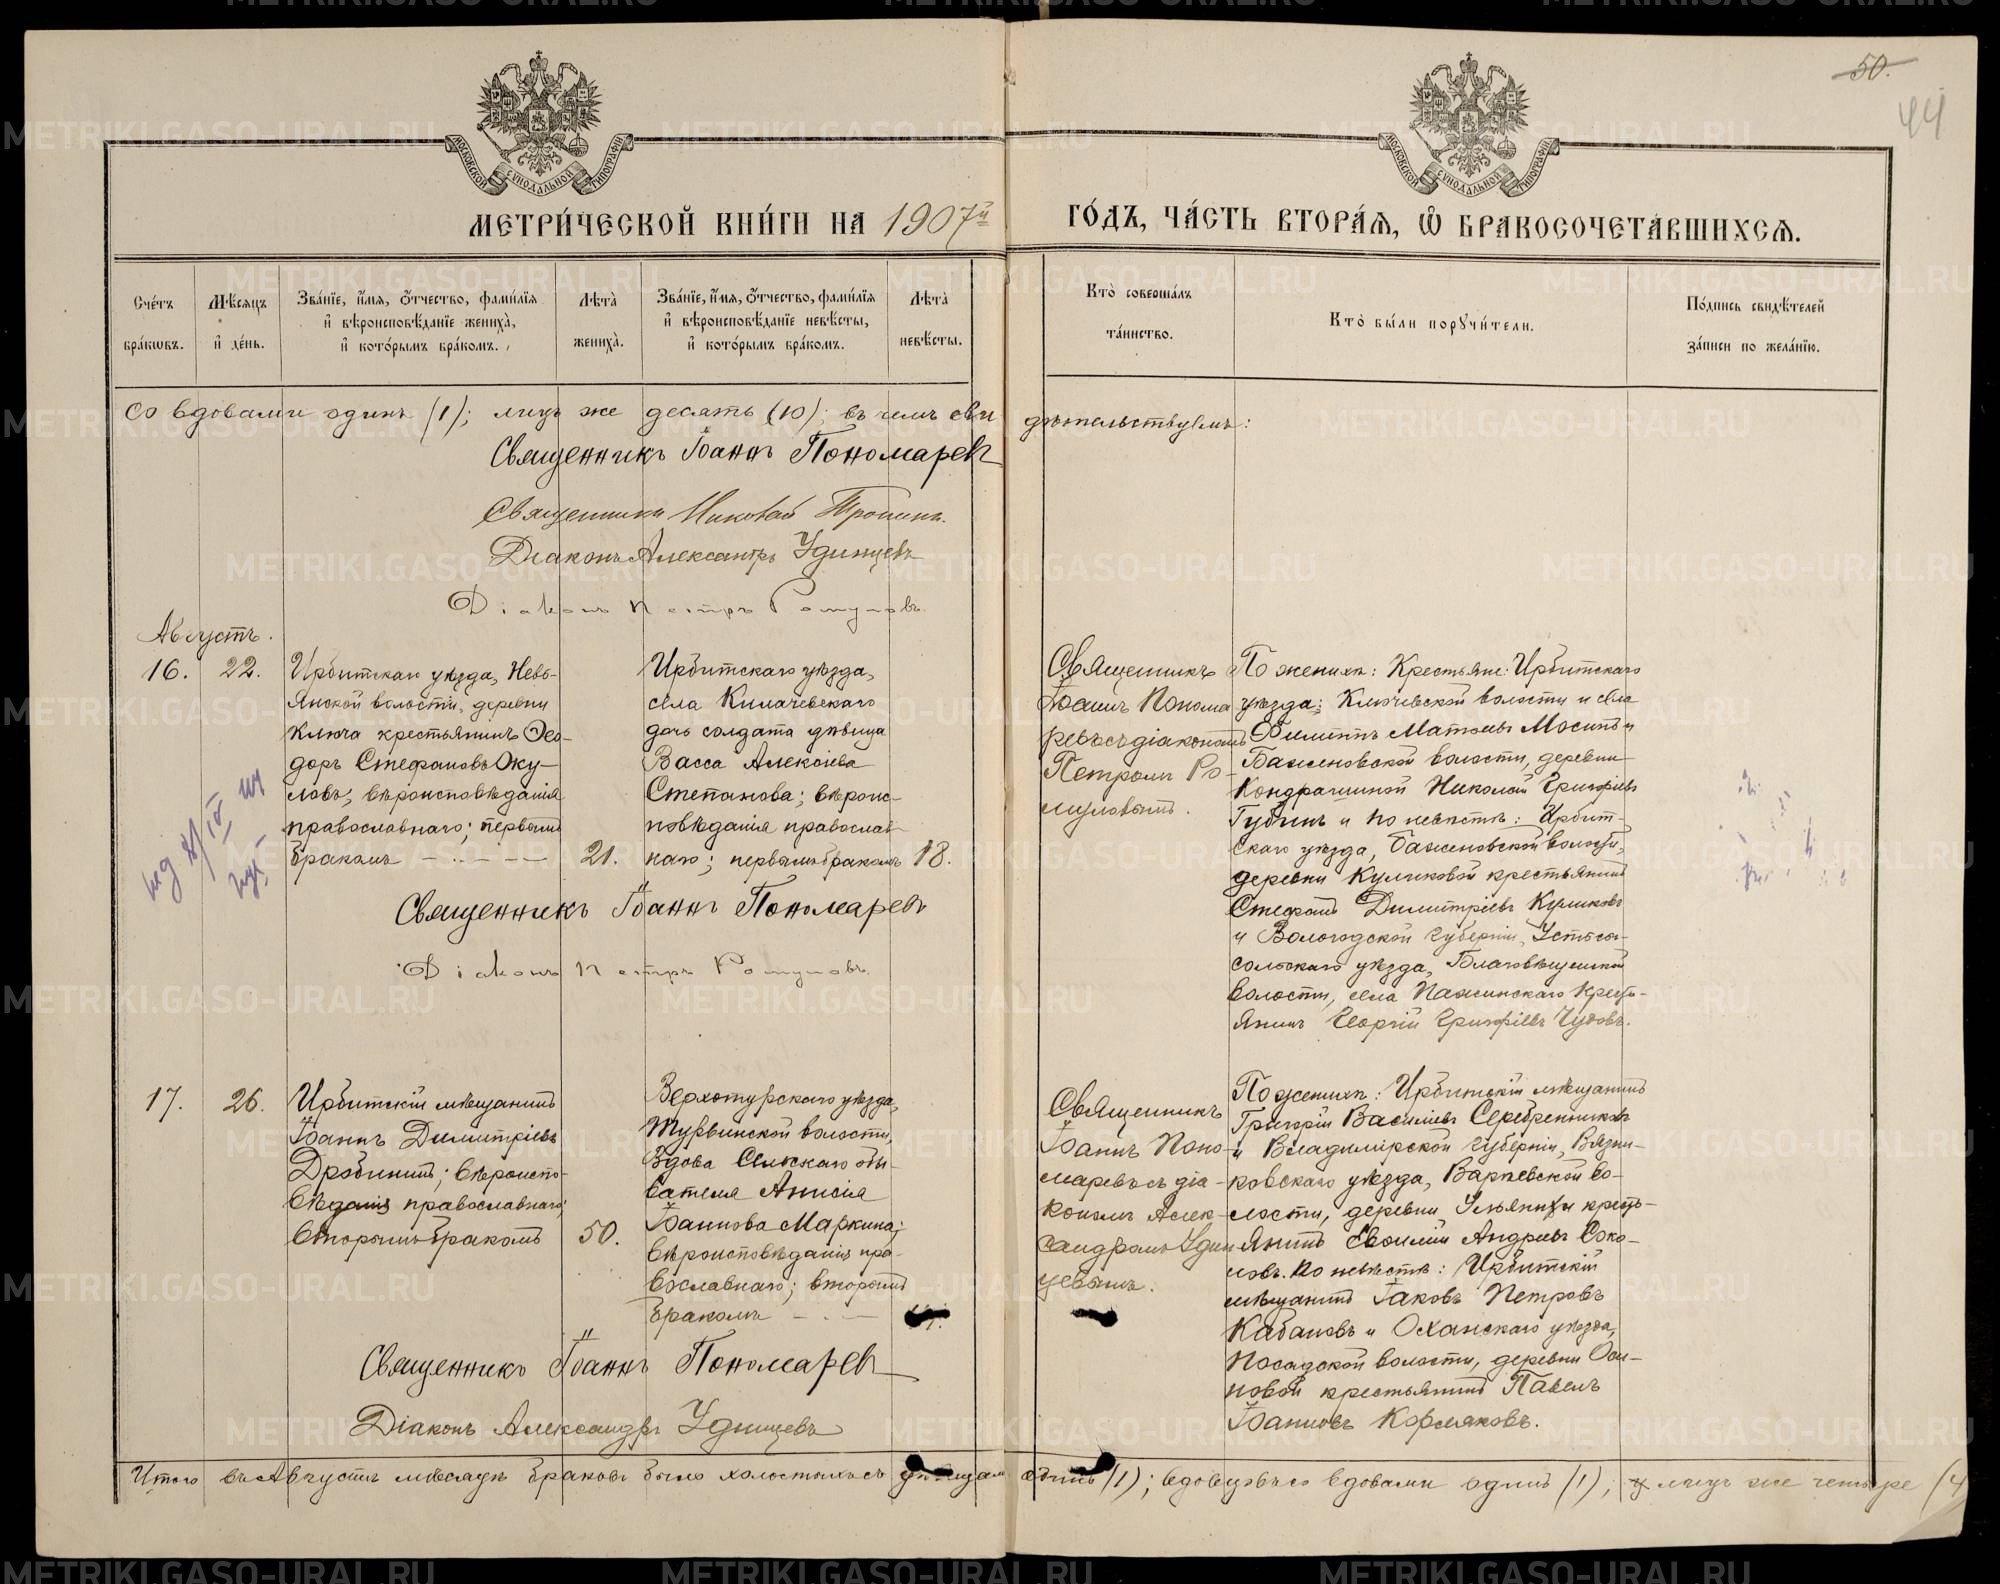 50.
44
МОСКОВСКОЙ СУНОДАЛЬНОЙ ТИПОГРАФІИ
МОСКОВСКОЙ СУНОДАЛЬНОЙ ТИПОГРАФІИ
МЕТРИ́ЧЕСКОЙ КНИ́ГИ НА 1907й
ГО́ДЪ, ЧА́СТЬ ВТОРА́Я, Ѡ БРАКОСОЧЕТА́ВШИХСЯ.
Сче́тъ бра́кωвъ.
Мѣ́сяцъ и҆ де́нь.
Зва́нїе, и҆́мя, ѻ҆́тчество, фами́лїя и҆ вѣроисповѣ́данїе жениха̀, и҆ кото́рымъ бра́комъ.
Лѣта̀ жениха̀.
Зва́нїе, и҆́мя, ѻ҆́тчество, фами́лїя и҆ вѣроисповѣ́данїе невѣ́сты, и҆ кото́рымъ бра́комъ.
Лѣта̀ невѣ́сты.
Кто̀ соверша́лъ та́инство.
Кто̀ бы́ли порꙋчи́тели.
По́дпись свидѣ́телей за́писи по жела́нїю.
со вдовами одинъ (1); лицъ же десять (10); въ чемъ сви
дѣтельствуемъ:
Священникъ Іоаннъ Пономаревъ
Священникъ Николай Тропинъ.
Діаконъ Александръ Удинцевъ
Діаконъ Петръ Ромуловъ.
Августъ.
16.
22.
Ирбитскаго уѣзда, Невь-
янской волости, деревни
Ключа крестьянинъ Ѳео-
доръ Стефановъ Оку-
ловъ; вѣроисповѣданія
православнаго; первымъ
бракомъ
21.
Ирбитскаго уѣзда,
села Килачевскаго
дочь солдата дѣвица
Васса Алексіева
Степанова; вѣроис-
повѣданія православ-
наго; первымъ бракомъ
18.
Священникъ
Іоаннъ Понома
ревъ съ діакономъ
Петромъ Ро-
муловымъ.
По женихѣ: Крестьяне: Ирбитскаго
уѣзда; Ключевской волости и села
Филиппъ Матѳіевъ Мосинъ и
Баженовской волости, деревни
Кондрашиной Николай Григоріевъ
Губинъ и по невѣстѣ: Ирбит-
скаго уѣзда, Баженовской волости,
деревни Куликовой крестьянинъ
Стефанъ Димитріевъ Куликовъ
и Вологодской губерніи, Устьсы-
сольскаго уѣзда, Благовѣщенской
волости, села Пажинскаго кресть-
янинъ Георгій Григоріевъ Чудовъ.
Священникъ Іоаннъ Пономаревъ
Діаконъ Петръ Ромуловъ.
17.
26.
Ирбитскій мѣщанинъ
Іоаннъ Димитріевъ
Дробининъ; вѣроиспо-
вѣданія православнаго;
вторымъ бракомъ
50.
Верхотурскаго уѣзда,
Турьинской волости,
вдова сельскаго обы-
вателя Анисія
Іоаннова Маркина;
вѣроисповѣданія пра-
вославнаго; вторымъ
бракомъ
Священникъ
Іоаннъ Поно-
маревъ съ діа-
кономъ Алек-
сандромъ Удин
цевымъ.
По женихѣ: Ирбитскій мѣщанинъ
Григорій Василіевъ Серебренниковъ
и Владимірской губерніи, Вязни-
ковскаго уѣзда, Вареевской во-
лости, деревни Ульянихи кресть-
янинъ Евсилій Андреевъ Соко-
ловъ. По невѣстѣ: Ирбитскій
мѣщанинъ Іаковъ Петровъ
Кабаковъ и Оханскаго уѣзда,
Посадской волости, деревни Оси-
новой крестьянинъ Павелъ
Іоанновъ Кормяковъ.
Священникъ Іоаннъ Пономаревъ
Діаконъ Александръ Удинцевъ
Итого въ Августѣ мѣсяцѣ браковъ было холостыхъ съ дѣвицами одинъ (1); вдовцовъ со вдовами одинъ (1); лицъ же четыре (4
METRIKI.GASO-URAL.RU